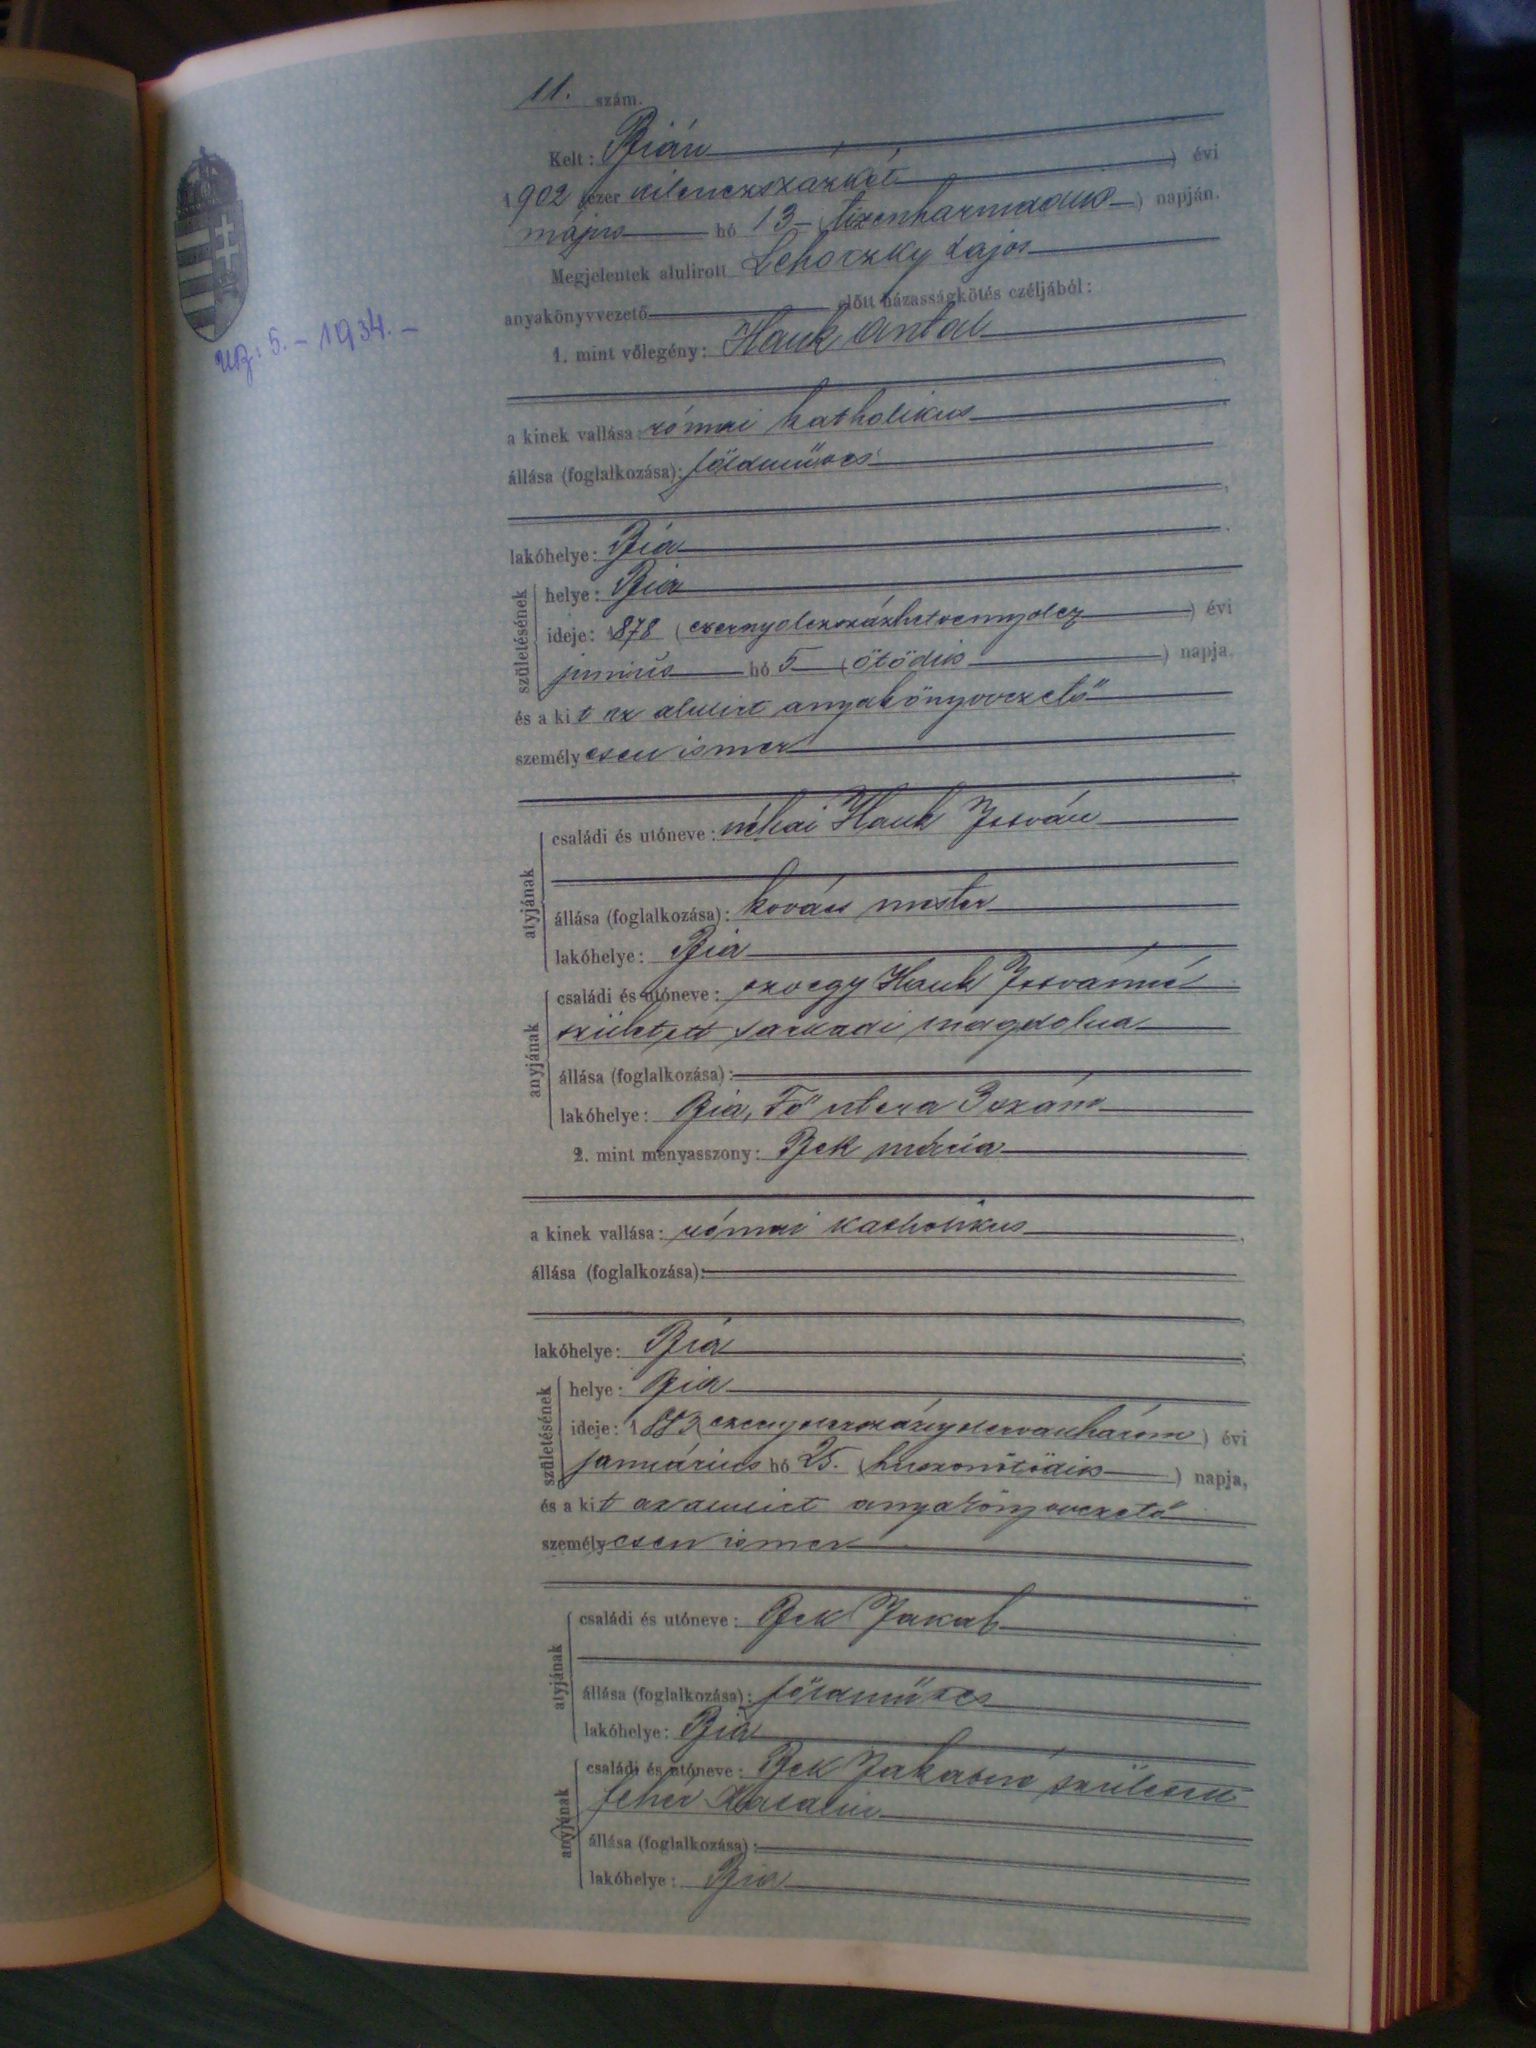 11. szám.
Kelt: Bián
1902 (ezer kilenczszázkét) évi
május hó 13 (tizenharmadik) napján.
Megjelentek alulirott Lehoczky Lajos
anyakönyvvezető előtt házasságkötés czéljából:
1. mint vőlegény: Hauk Antal
uz: 5. - 1934. -
a kinek vallása: római katholikus
állása (foglalkozása): földműves
lakóhelye: Bia
születésének
helye: Bia
ideje: 1878 (ezernyolczszázhetvennyolcz) évi
junius hó 5 (ötödik) napja,
és a kit az alulirt anyakönyvvezető
személyesen ismer
atyjának
családi és utóneve: néhai Hauk István
állása (foglalkozása): kovács mester
lakóhelye: Bia
anyjának
családi és utóneve: özvegy Hauk Istvánné
született Sarkadi Magdolna
állása (foglalkozása):
lakóhelye: Bia, Fő utcza szám
2. mint menyasszony: Bek Mária
a kinek vallása: római katholikus
állása (foglalkozása):
lakóhelye: Bia
születésének
helye: Bia
ideje: 1883 (ezernyolczszáznyolczvanhárom) évi
januárius hó 25. (huszonötödik) napja,
és a kit az alulirt anyakönyvvezető
személyesen ismer
atyjának
családi és utóneve: Bek Jakab
állása (foglalkozása): földműves
lakóhelye: Bia
anyjának
családi és utóneve: Bek Jakabné született
Fehér Katalin
állása (foglalkozása):
lakóhelye: Bia